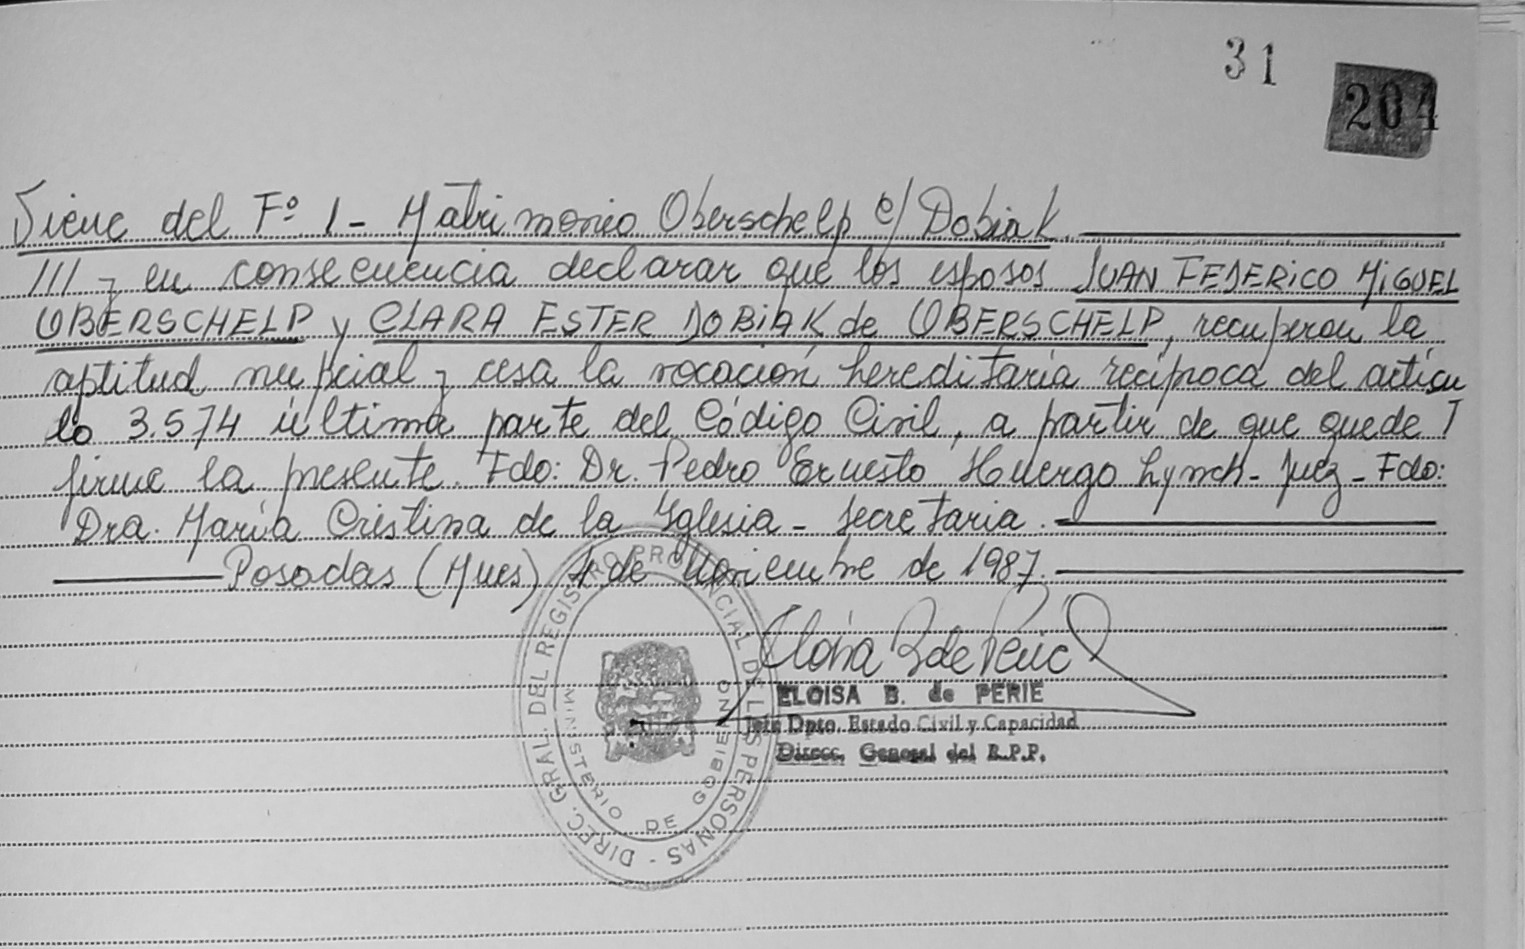 31
204
Viene del Fº 1 - Matrimonio Oberschelp c/ Dobiak.
III - en consecuencia declarar que los esposos JUAN FEDERICO MIGUEL
OBERSCHELP y CLARA ESTER DOBIAK de OBERSCHELP, recuperan la
aptitud nupcial y cesa la vocación hereditaria recíproca del artícu
lo 3.574 última parte del Código Civil, a partir de que quede
firme la presente. Fdo: Dr. Pedro Ernesto Huergo Lynch - Juez - Fdo:
Dra. María Cristina de la Iglesia - Secretaria.
Posadas (Mnes) 4 de Noviembre de 1987.
ELOISA B. de PERIE
Jefe Dpto. Estado Civil y Capacidad
Direcc. General del R.P.P.
DIREC. GRAL. DEL REGISTRO PROVINCIAL DE LAS PERSONAS -
MINISTERIO DE GOBIERNO